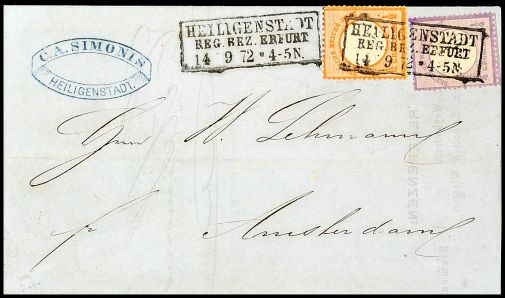 C.A. SIMONIS
HEILIGENSTADT.
HEILIGENSTADT
REG. BEZ. ERFURT
14 9 72 * 4-5N.
HEILIGENSTADT
REG. BEZ. ERFURT
14 9 * 4-5N.
Herrn W. Lehmann
Amsterdam